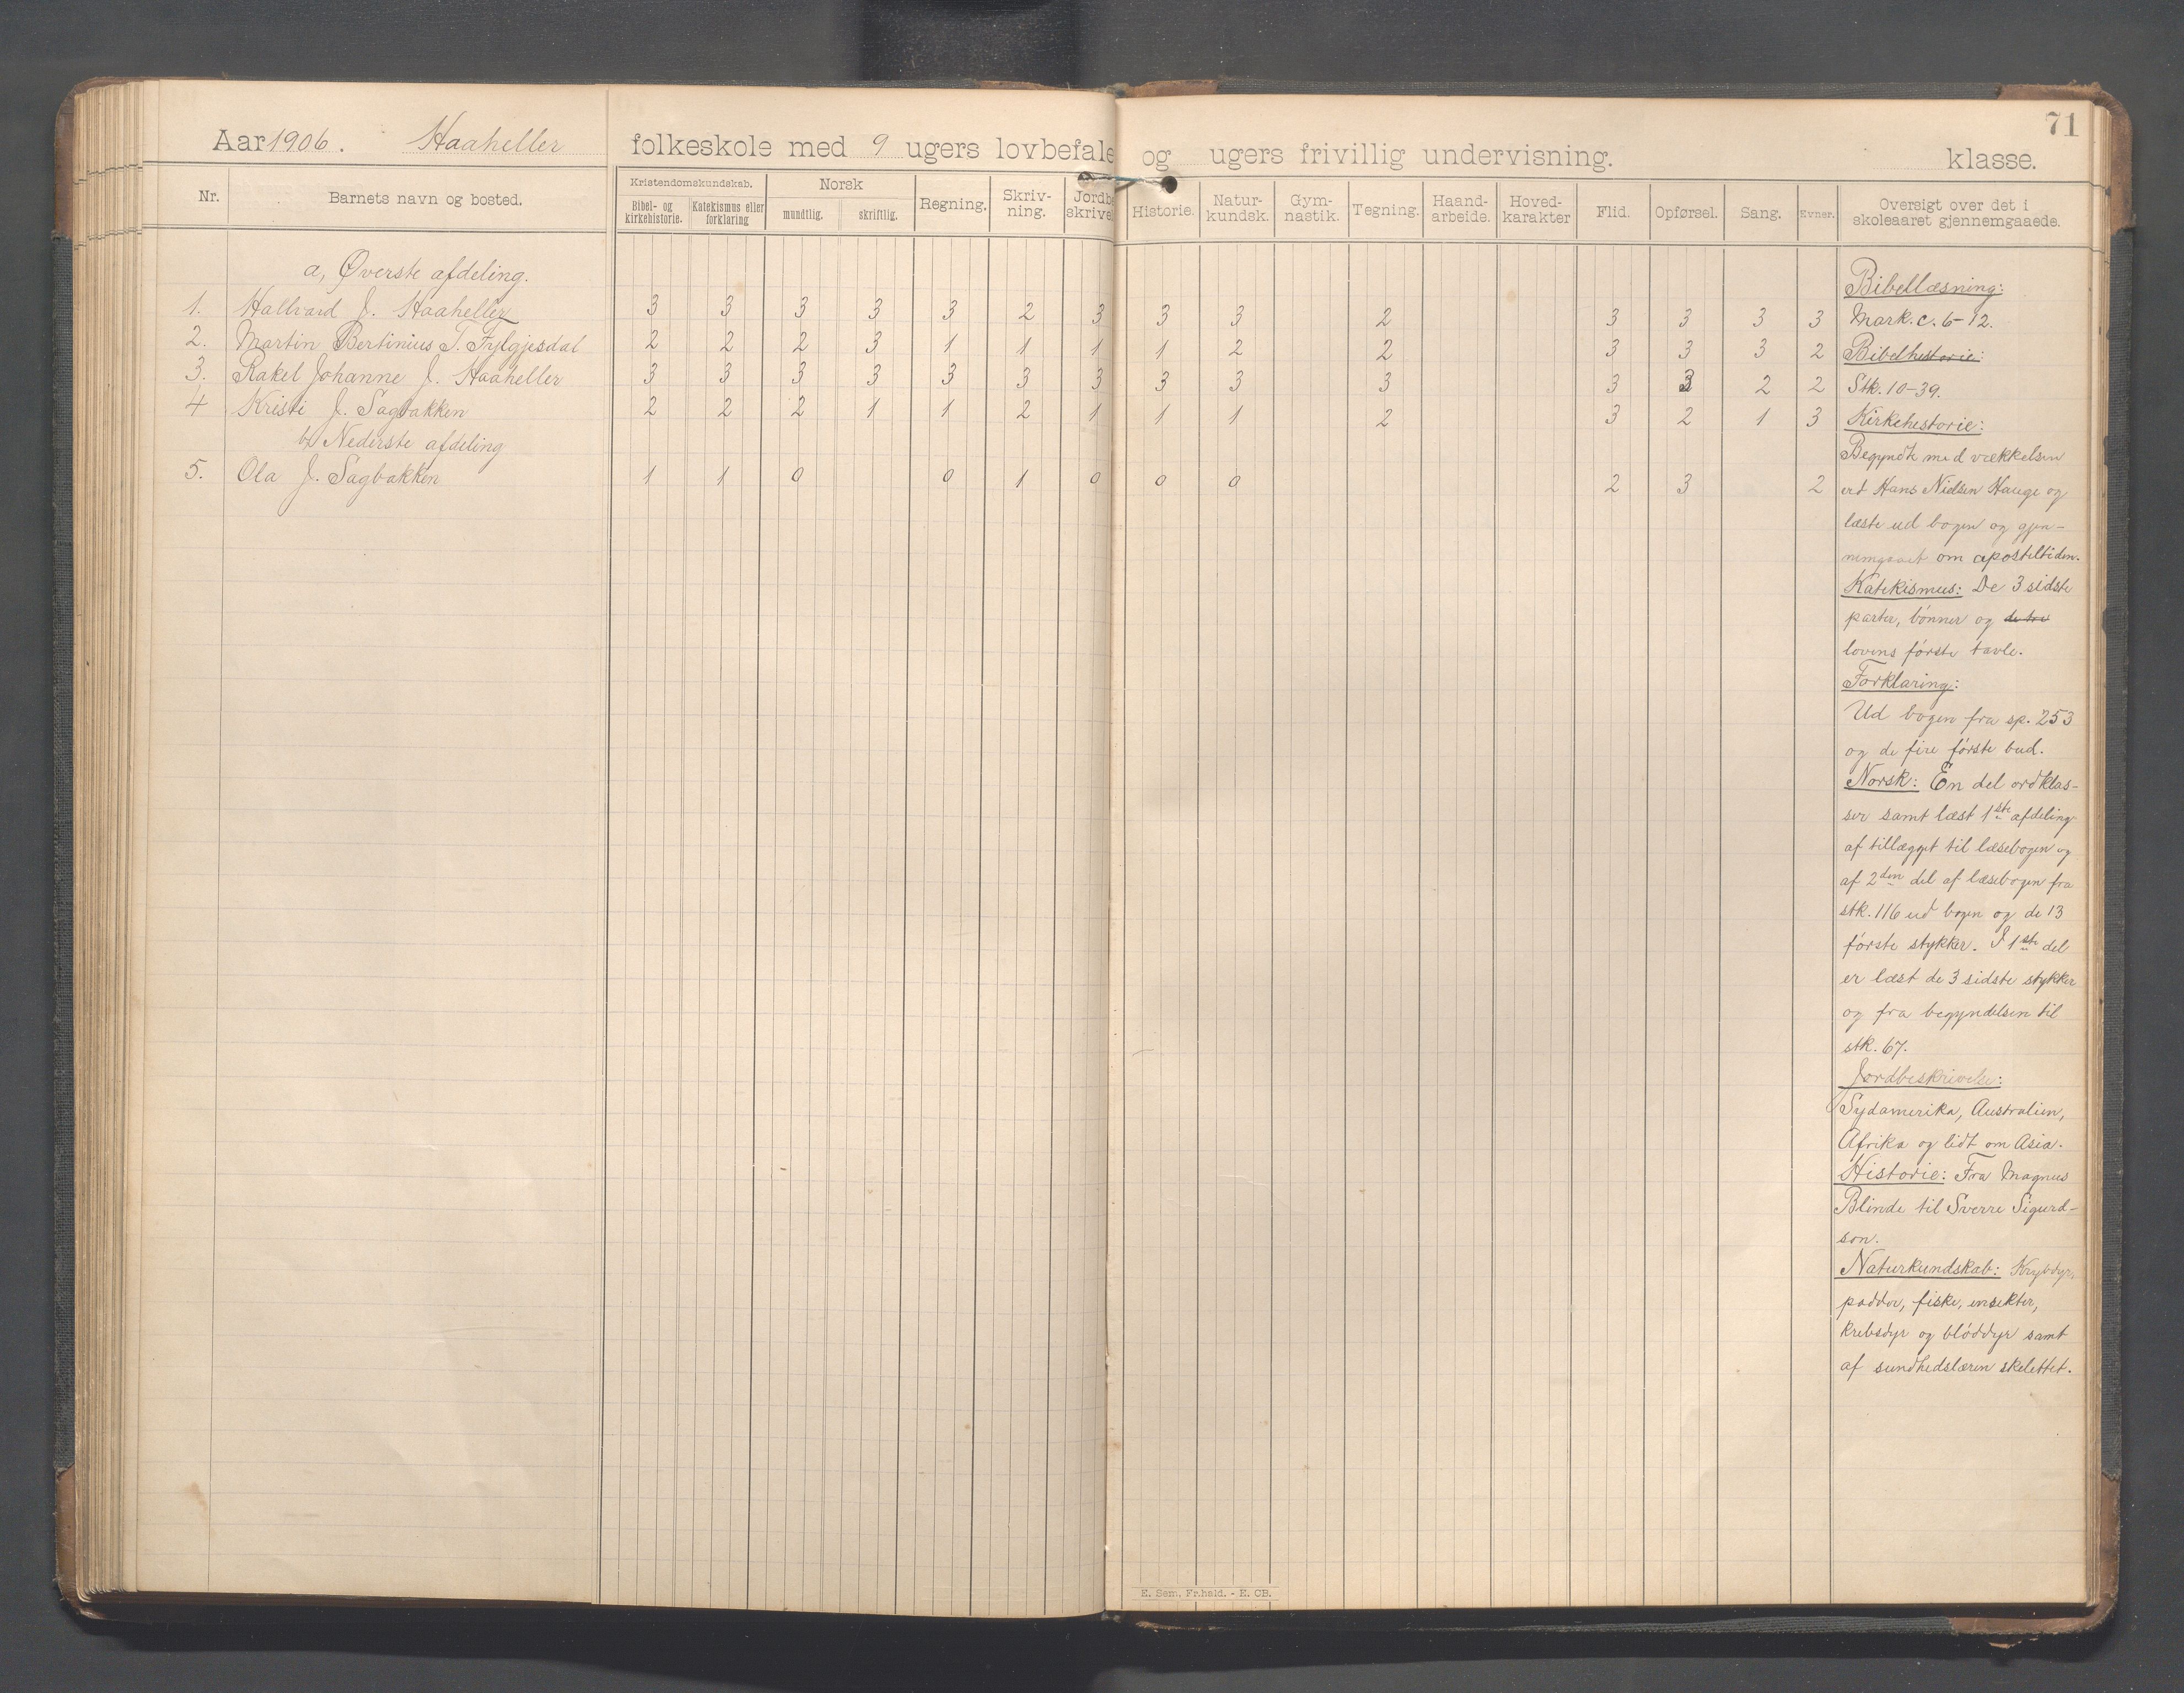 71
Aar 1906. Haaheller folkeskole med 9 ugers lovbefale og ugers frivillig undervisning. klasse.
Nr. Barnets navn og bosted. Kristendomskundskab. Bibel- og kirkehistorie. Katekismus eller forklaring Norsk mundtlig. skriftlig. Regning. Skriv-ning. Jordbe skrivel Historie. Natur-kundsk. Gym-nastik. Tegning. Haand-arbeide. Hoved-karakter Flid. Opførsel. Sang. Evner. Oversigt over det i skoleaaret gjennemgaaede.
a, Øverste afdeling.
1. Hallvard J. Haaheller 3 3 3 3 3 2 3 3 3 2 3 3 3 3
2. Martin Bertinius T. Fylgjesdal 2 2 2 3 1 1 1 1 2 2 3 3 3 2
3. Rakel Johanne J. Haaheller 3 3 3 3 3 3 3 3 3 3 3 3 2 2
4 Kristi J. Sagbakken 2 2 2 1 1 2 1 1 1 2 3 2 1 3
b, Nederste afdeling
5. Ola J. Sagbakken 1 1 0 0 1 0 0 0 2 3 2
Bibellæsning:
Mark. c. 6-12.
Bibelhistorie:
Stk. 10-39.
Kirkehistorie:
Begyndt med vækkelsen
ved Hans Nielsen Hauge og
læste ud bogen og gjen-
nemgaaet om aposteltiden.
Katekismus: De 3 sidste
parter, bønner og de tre
lovens første tavle.
Forklaring:
Ud bogen fra sp. 253
og de fire første bud.
Norsk: En del ordklas-
ser samt læst 1ste afdeling
af tillægget til læsebogen og
af 2den del af læsebogen fra
stk. 116 ud bogen og de 13
første stykker. I 1ste del
er læst de 3 sidste stykker
og fra begyndelsen til
stk. 67.
Jordbeskrivelse:
Sydamerika, Australien,
Afrika og lidt om Asia.
Historie: Fra Magnus
Blinde til Sverre Sigurd-
son.
Naturkundskab: Krybdyr,
padder, fiske, insekter,
krebsdyr og bløddyr samt
af sundhedslæren skelettet.
E. Sem, Fr.hald. - E. CB.